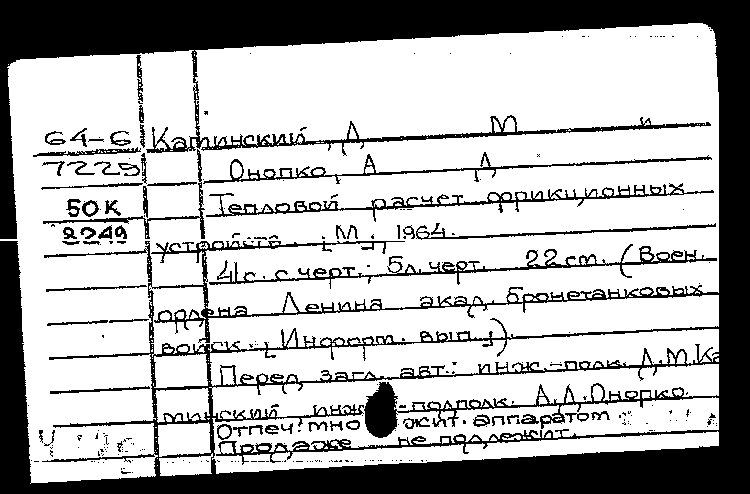 64-6 Катинский, Д М и
7229 Онопко, А Д
50К Тепловой расчет фрикционных
2249 устройств. [М.], 1964.
41с. с черт.; 5л. черт. 22 см. (Воен.
ордена Ленина акад. бронетанковых
войск. [Информ. вып.])
Перед загл. авт.: инж.-полк. Д.М.Ка
тинский, инж -подполк. А.Д.Онопко.
Отпеч. мно жит. аппаратом.
Продаже не подлежит.